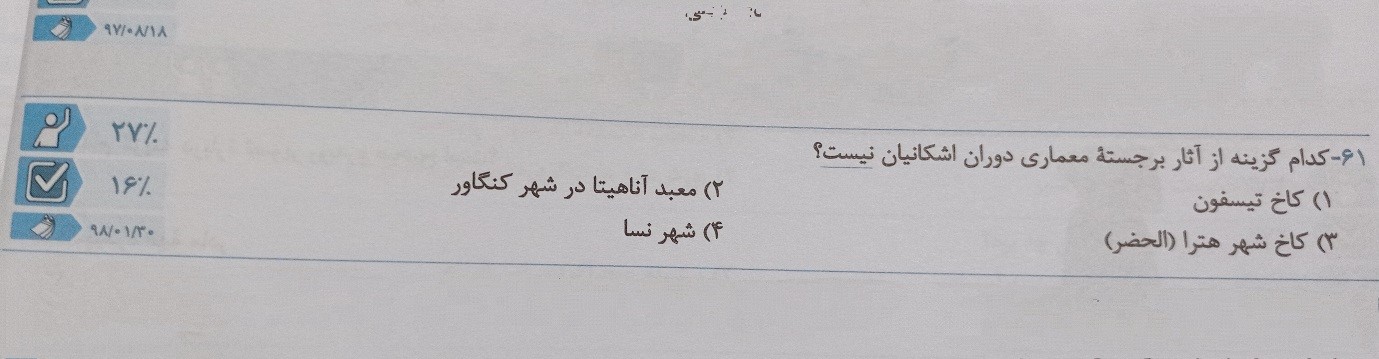 ۹۷/۰۸/۱۸
۲۷٪
۶۱-کدام گزینه از آثار برجستهٔ معماری دوران اشکانیان نیست؟
۱) کاخ تیسفون
۲) معبد آناهیتا در شهر کنگاور
۱۶٪
۳) کاخ شهر هترا (الحضر)
۴) شهر نسا
۹۸/۰۱/۳۰